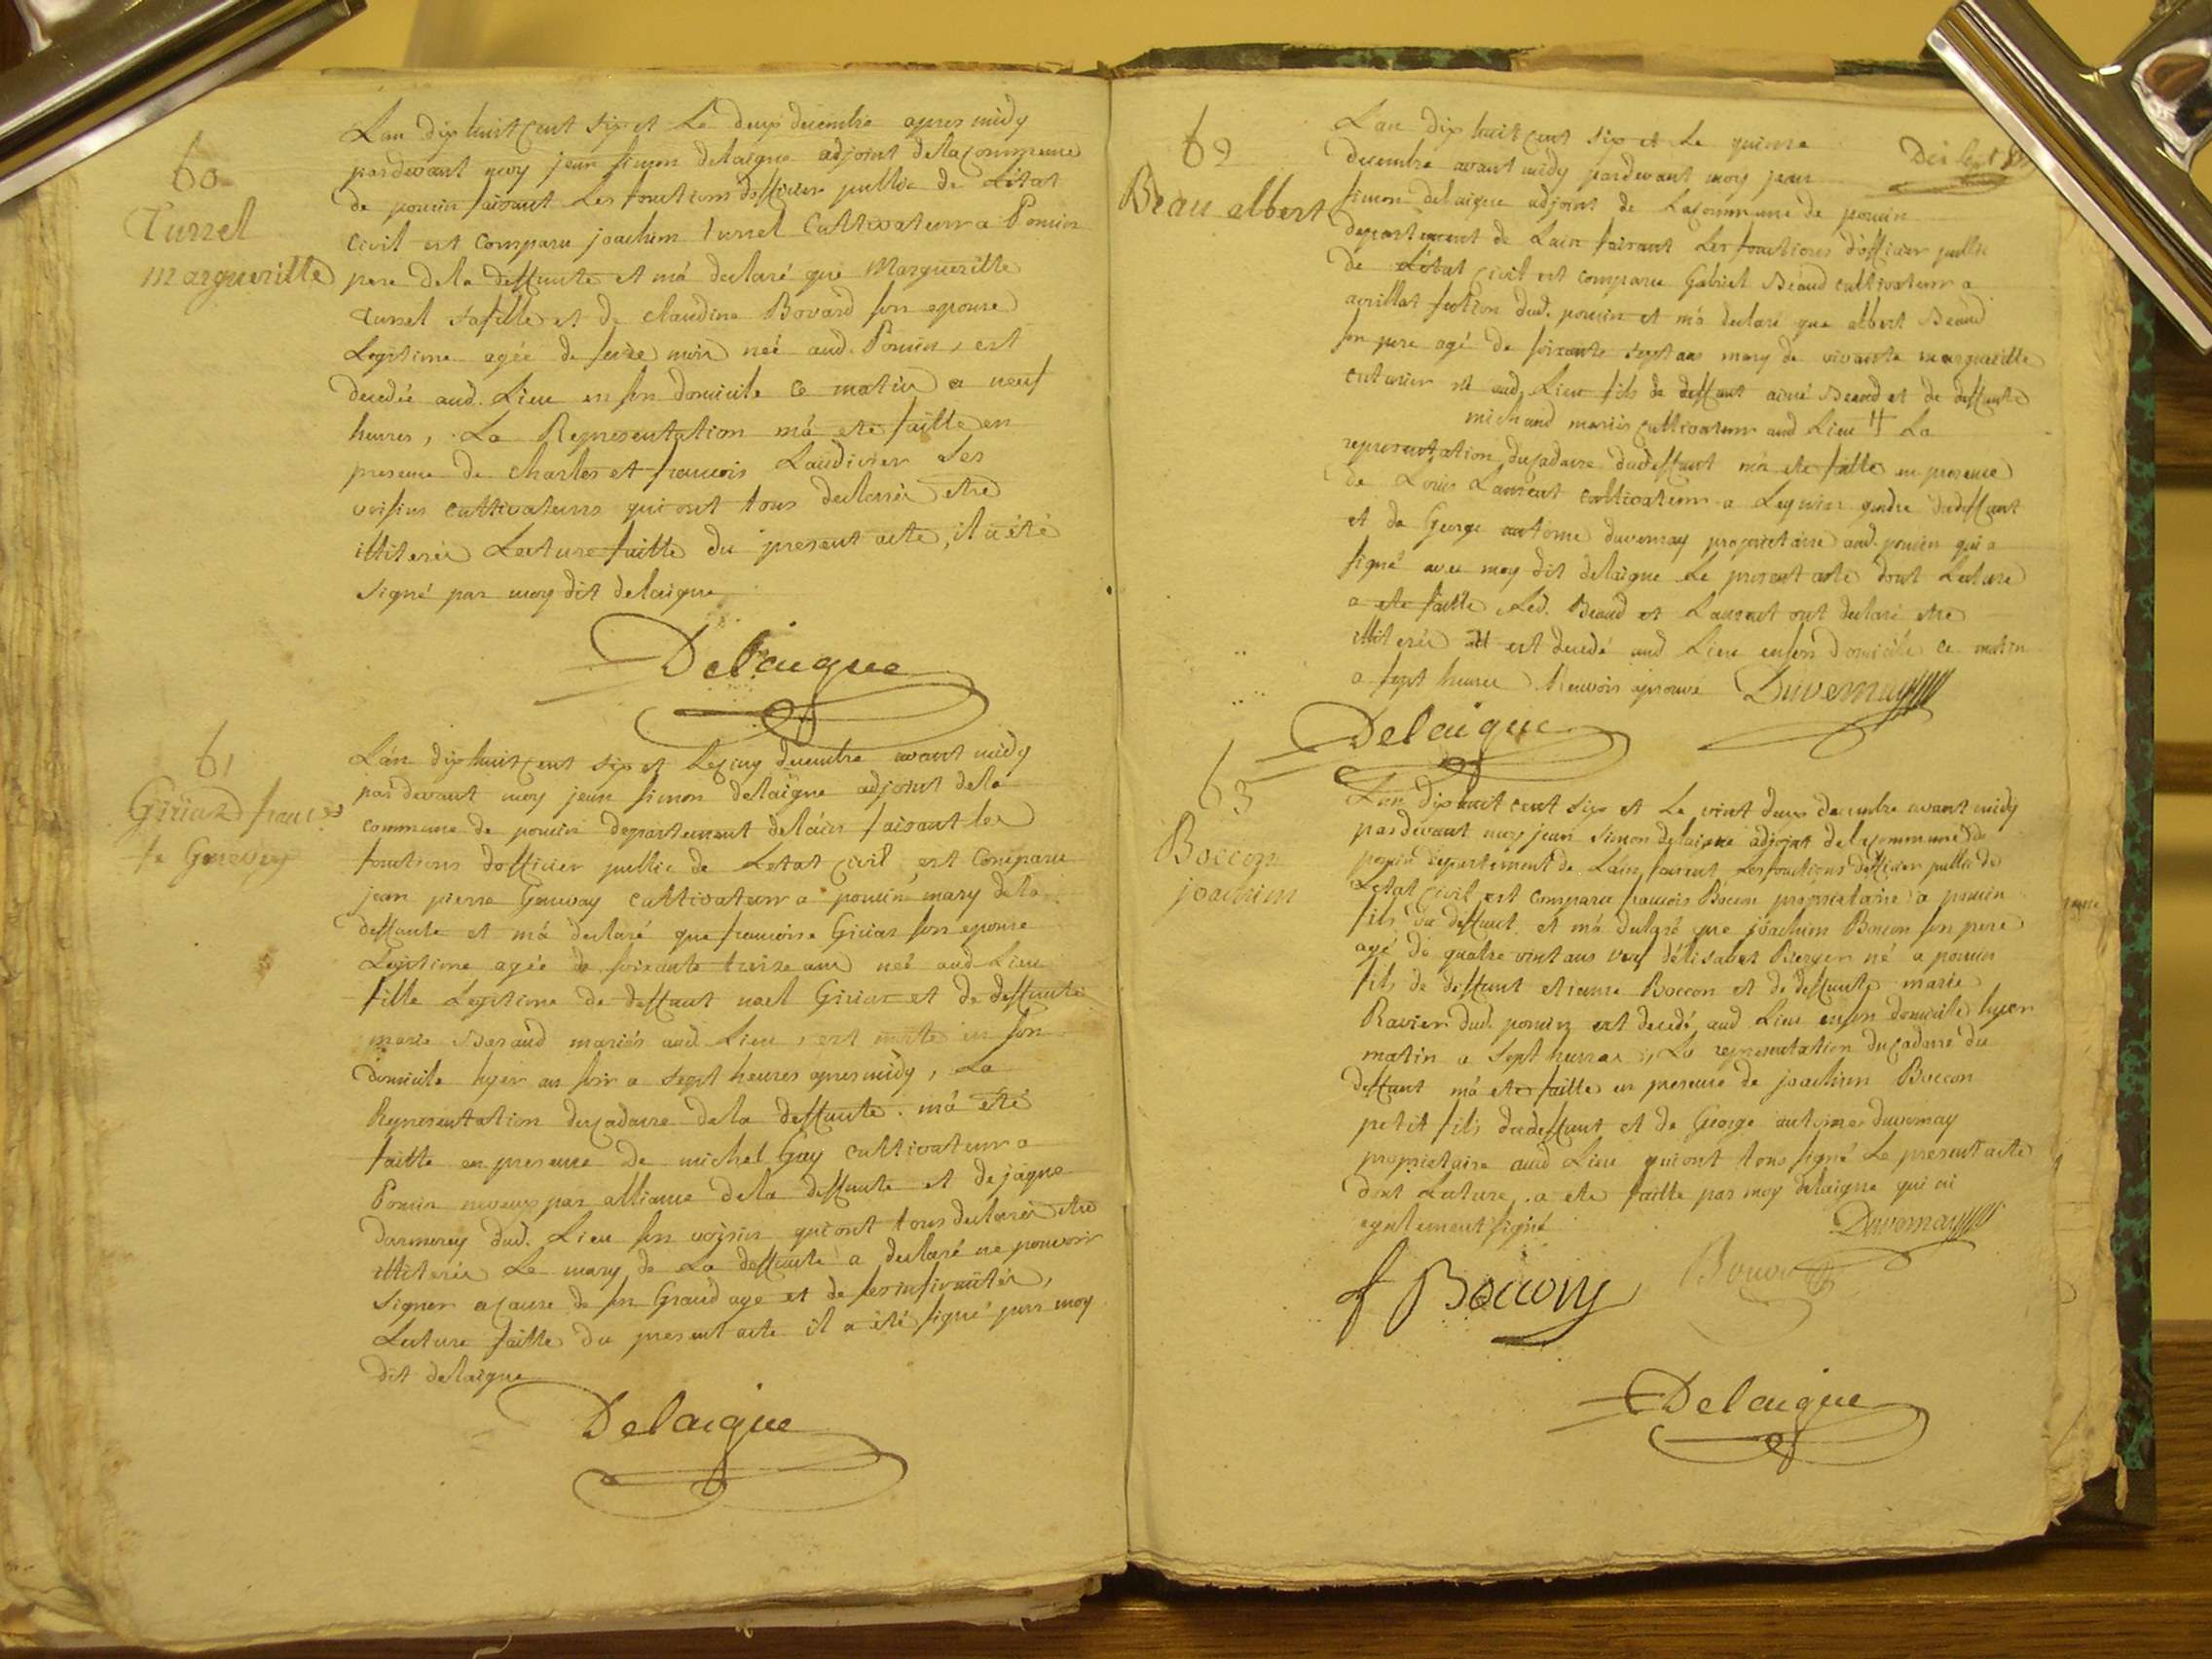 60
Turrel
margueritte
Lan dix huit cent six et Le deux decembre apres midy
pardevant moy jean simon delaigue adjoint dela commune
de poncin faisant Les fonctions dofficier public de Létat
Civil est Comparu joachim turrel Cultivateur a Poncin
pere dela deffunte et má declaré que Marguerilte
turrel safille et de claudine Bovard son epouse
Legitime agée de seize mois neé aud. Poncin, est
decedée aud. Lieu en son domicile ce matin a neuf
heures, La Representation má eté faitte en
presence de charles et francois Laudivier Ses
voisins cultivateurs qui ont tous declarés etre
illiterés Lecture faitte du present acte, il a été
signé par moy dit delaigue
Delaigue
61
Giriaz francse
fe Genevey
Lán dix huit cent six et Le cinq decembre avant midy
pardevant moy jean simon delaigue adjoint dela
commune de poncin departement deláin faisant les
fonctions dofficier public de Letat Civil, est Comparu
jean pierre Genevay cultivateur a poncin mary dela
deffunte et má declaré que francoise Girias son epouse
Legitime agée de soixante treize ans neé aud Lieu
fille Legitime de deffunt noel Girias et de deffunte
marie Beraud mariés aud Lieu, est morte en son
domicile hyer au soir a sept heures apres midy, La
Representation du cadavre dela deffunte má été
faitte en presence de michel Gay cultivateur a
Poncin neveux par alliance dela deffunte et de jaque
darmerey dud. Lieu son voisin qui ont tous declarés etre
illiterés Le mary de La deffunte a declaré ne pouvoir
signer a cause de son Grand age et de ses infirmités,
Lecture faitte du present acte il a été signé par moy
dit delaigue
Delaigue
62
Beau albert
Lan dix huit cent six et Le quinze
decembre avant midy pardevant moy jean
simon delaigue adjoint de La commune de poncin
departement de Lain faisant Les fonctions dofficier public
de Létat Civil est comparu Gabriel Béaud cultivateur a
section dud. poncin et má declaré que albert Béaud
son pere agé de soixante sept ans mary de vivante marguerilte
cuturier né aud. Lieu fils de deffunt aimé Beaud et de deffunte
michaud mariés cultivateurs aud Lieu # La
representation du cadavre dudeffunt má eté faitte en presence
de Louis Laurent cultivateur a Leguin gendre dudeffunt
et de George antoine duvernay proprietaire aud. poncin qui a
signé avec moy dit delaigue Le present acte dont Lecture
a eté faitte Led. Beaud et Laurent ont declaré etre
illiterés # est decedé aud Lieu en son domicile ce matin
a sept heures Renvois aprouvé Duvernay
Delaigue
63
Boccon
joachim
Lan dix huit cent six et Le vint deux decembre avant midy
pardevant moy jean simon delaigue adjoint dela commune de
poncin departement de Láin faisant Les fonctions dofficier public de
Létat Civil est comparu francois Bocon proprietaire a poncin
fils du deffunt et má declaré que joachim Bocon son pere
agé de quatre vint ans veuf délisabet Berger né a poncin
fils de deffunt etienne Boccon et de deffunte marie
Ravier dud. poncin est decedé aud Lieu en son domicile hyer
matin a sept heures, La representation du cadavre du
deffunt má eté faitte en presence de joachim Boccon
petit fils dudeffunt et de George antoine duvernay
proprietaire aud Lieu qui ont tous signé Le present acte
dont Lecture a eté faitte par moy delaigue qui ai
egalement signé
Duvernay
f Boccon
Delaigue